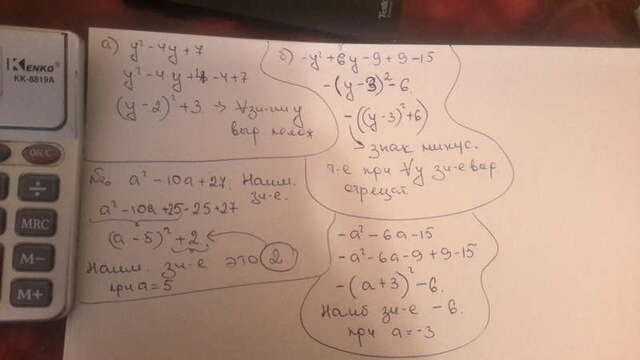 KENKO
KK-8819A
ON/C
÷
MRC
M−
M+
а) y² - 4y + 7
y² - 4y + 4 - 4 + 7
(y - 2)² + 3 → ∀ зн-ии y
выр полож
б) -y² + 6y - 9 + 9 - 15
-(y - 3)² - 6
-((y - 3)² + 6)
знак минус.
т-е при ∀y зн-е выр
отрецат
№6 a² - 10a + 27. Наим.
зн-е.
a² - 10a + 25 - 25 + 27
(a - 5)² + 2
Наим. зн-е это 2
при a = 5
-a² - 6a - 15
-a² - 6a - 9 + 9 - 15
-(a + 3)² - 6.
Наиб зн-е - 6.
при a = -3